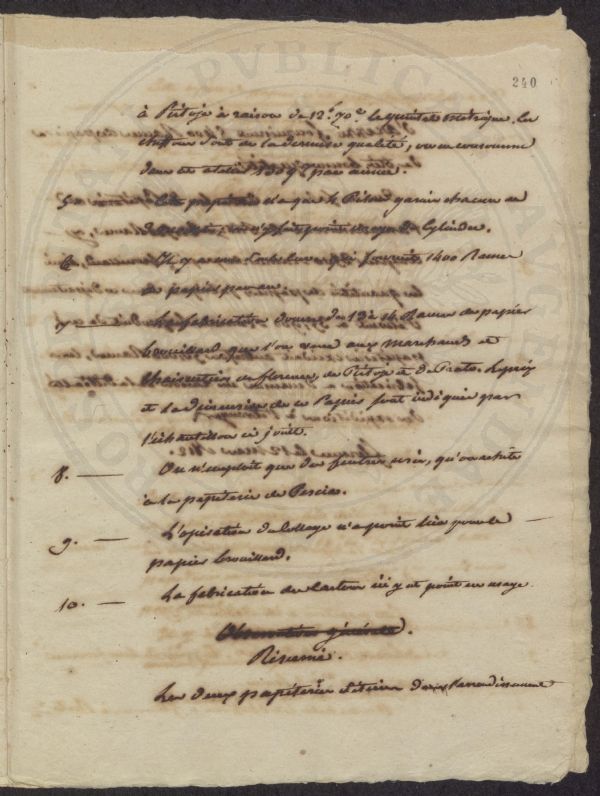 240
à Pistoje à raison de 12f. 70c. le quintal métrique. Les
chiffons sont de la dernière qualité, on en consomme
dans cet atelier par année.
5. — Cette papeterie n'a que 4 Piles garnie chacune de
on n'y fait point usage de Cylindre.
6. — Il y a une Cuve 1400 Rames
de papiers par an.
7. — La fabrication donne de 12 à 14 Rames de papier
brouillard que l'on vend aux marchands et
de florence, de Pistoje et de Prato. Le prix
et la dimension de ce Papier sont indiqués par
l'échantillon ci joint.
8. — On n'emploit que des feutres usés, qu'on achète
à la papeterie de Pescia.
9. — L'opération du Collage n'a point lieu pour le
papier brouillard.
10. — La fabrication des Cartons n'y est point en usage.
Observations générales.
Résumé.
Les deux papéteries de l'arrondissement
PVBLIC